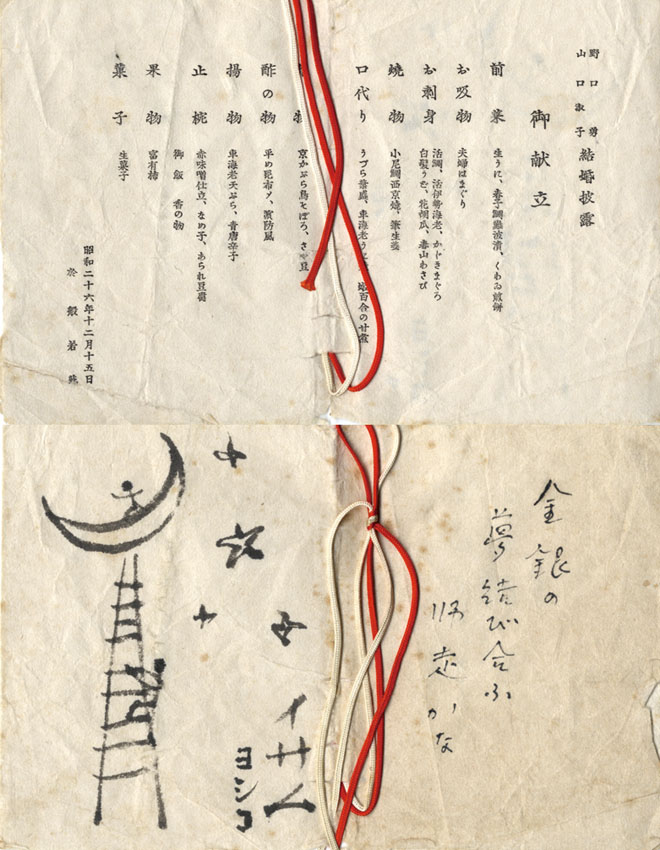 野口勇
山口淑子
結婚披露
御献立
前菜 生うに、春子鯛難波漬、くわゐ煎餅
お吸物 夫婦はまぐり
お刺身 活鯛、活伊勢海老、かぢきまぐろ
白髪うど、花胡瓜、春山わさび
焼物 小尾鯛西京焼、筆生姜
口代り うづら葉盛、車海老う 百合の甘煮
物 京かぶら鳥そぼろ、さや豆
酢の物 平め昆布〆、濱防風
揚物 車海老天ぷら、青唐辛子
止椀 赤味噌仕立、なめ子、あられ豆腐
御飯 香の物
果物 富有柿
菓子 生菓子
昭和二十六年十二月十五日
於般若苑
金銀の
夢結び合ふ
師走かな
イサム
ヨシコ